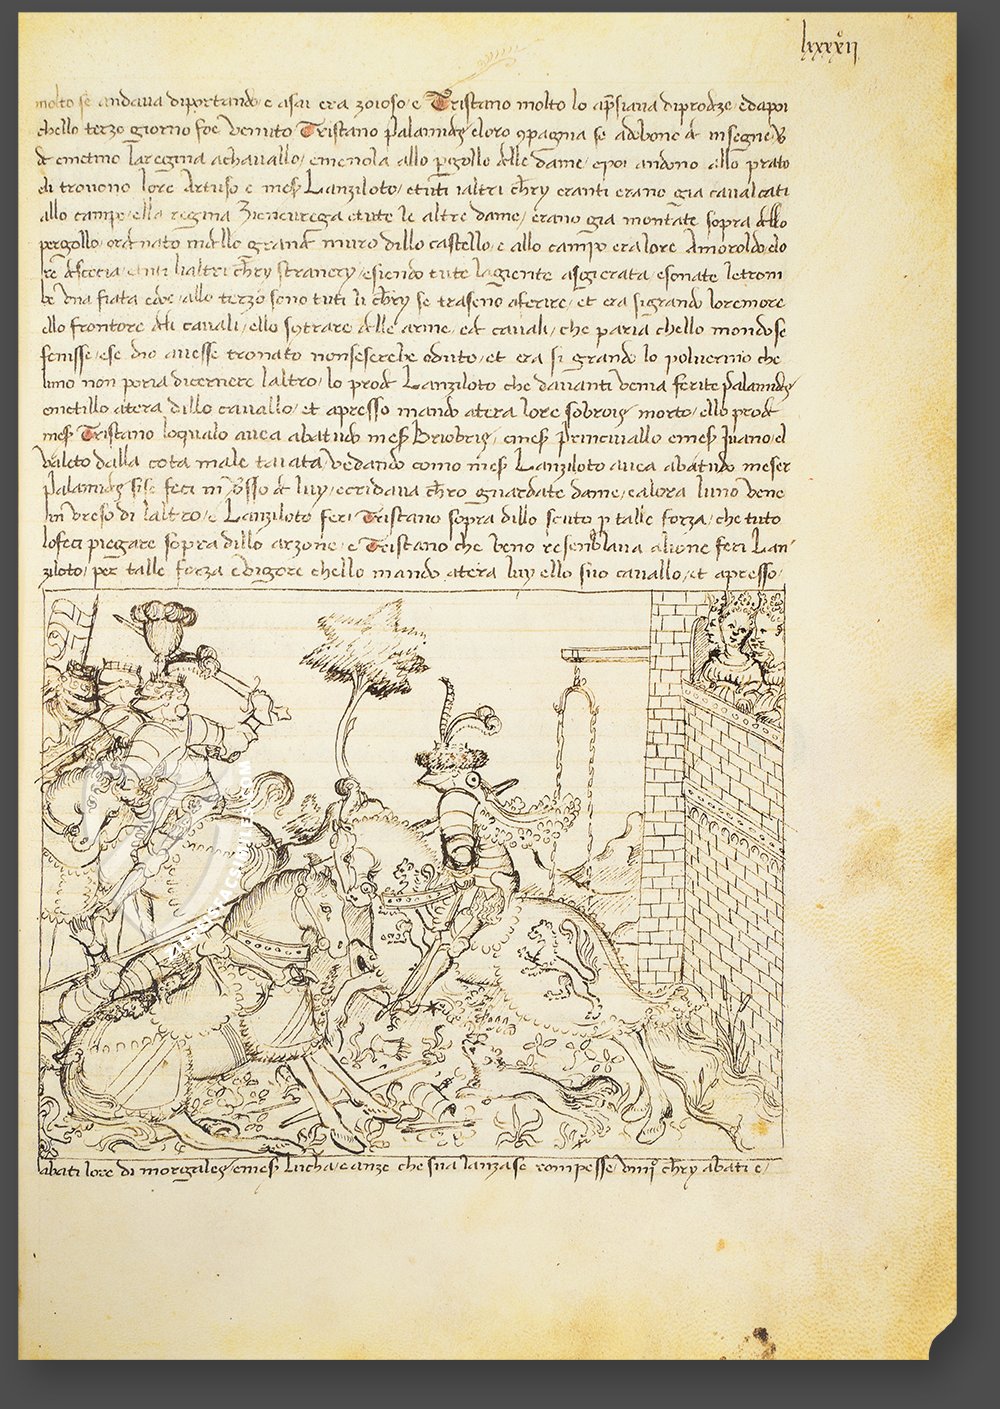 lxxxxij
molto se andaua diportando e asai era zoioso e Tristano molto lo apsiaua di prodze edapoi
chello terzo giorno foe venuto Tristano palamides eloro 9pagnia se adobono de insegne v
de emetino laregina achauallo emenola allo pergollo delle dame epoi andono allo prato
eli trouono lore Artuso e mes Lanziloto etuti ialtri chry eranti erano gia caualcati
allo campo ella regina Zieneurega etute le altre dame erano gia montate sopra dello
pergollo ordinato nello grande muro dillo castello e allo campo era lore Amoroldo elo
re descocia etuti lialtri chry stranery esiendo tute lagiente asegierata esonate letrom
be vna fiata edoe allo terzo sono tuti li chry se traseno aferire et era sigrando loremore
ello frontore deli caualli ello scontrare delle arme ed caualli che paria chello mondo se
fenisse ese dio auesse tronato nonseserebe oduto et era si grando lo poluerino che
luno non poria dicernere laltro lo prode Lanziloto che dauanti venia ferite palamides
emetillo atera dillo cauallo et apresso mando atera lore sobrois morto ello prode
mes Tristano loqualo auea abatudo mes Briobris emes princiuallo emes Juano el
valeto dalla cota male taiata vedando como mes Lanziloto auea abatudo meser
palamides sise feci in verso de luy ecridaua chro guardate dame ealora luno vene
in verso di laltro e Lanziloto feri Tristano sopra dillo scuto p talle forza che tuto
lofeci piegare sopra dillo arzone e Tristano che beno resenblaua alione feri Lan
ziloto per talle forza e vigore chello mando atera luy ello suo cauallo et apresso
abati lore di morgales emes Lucha eanze che sua lanza se rompesse viiij chry abati e
ZIEREIS FACSIMILES.COM